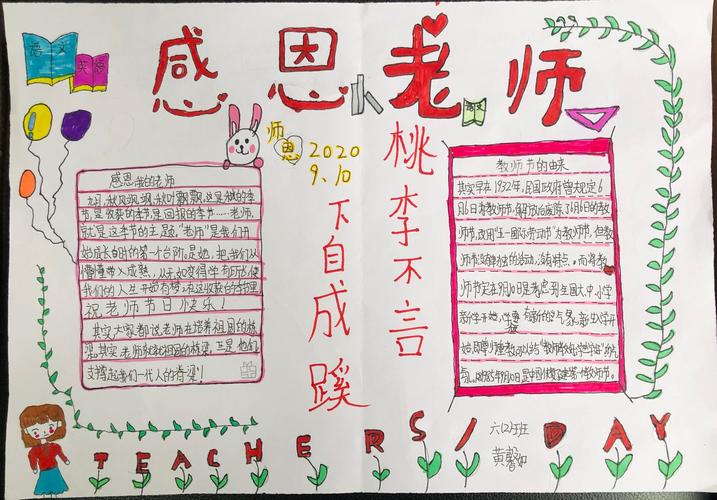 感恩老师
语文
英语
语文
师恩
2020
9.10
桃李不言
下自成蹊
感恩我的老师
九月,秋风飒飒,秋叶飘飘,这是
节,是收获的季节,是回报的季节……老师,
就是这季节的主题,"老师"是我们开
始成长时的第一个台阶,是她,把我们从
懵懂带入成熟,从无知变得学有所成,使
我们的人生开始有梦,在这收获的季节里
祝老师节日快乐!
其实大家都说老师在培养祖国的栋
梁,其实,老师就是祖国的脊梁,正是他们
支撑起我们一代人的脊梁!
教师节的由来
其实早在1932年,民国政府曾规定6
月6日为教师节,解放后废除了6月6日的教
师节,改用"五一国际劳动节"为教师节,但教
师节没有单独的活动,没有特点,而将教
师节定在9月10日是考虑到全国大、中、小学
新学年开始,学校有新的气象,新生入学开
始,尊师重教可以给"教师教好,学生学好"
1985年9月10日是中国第一个教师节。
TEACHERS' DAY
六(2)班
黄馨如